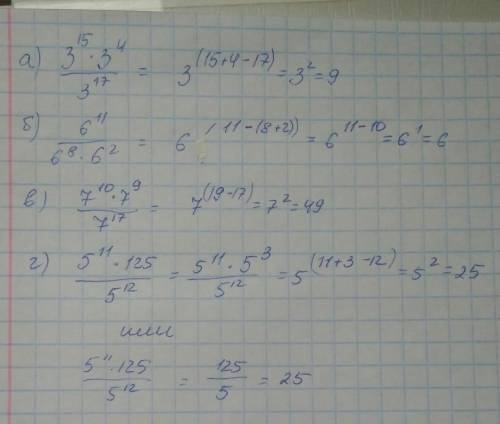 а) (3^15 · 3^4)/3^17 = 3^(15+4-17) = 3^2 = 9
б) 6^11/(6^8 · 6^2) = 6^(11-(8+2)) = 6^11-10 = 6^1 = 6
в) (7^10 · 7^9)/7^17 = 7^(19-17) = 7^2 = 49
г) (5^11 · 125)/5^12 = (5^11 · 5^3)/5^12 = 5^(11+3-12) = 5^2 = 25
или
(5^11 · 125)/5^12 = 125/5 = 25